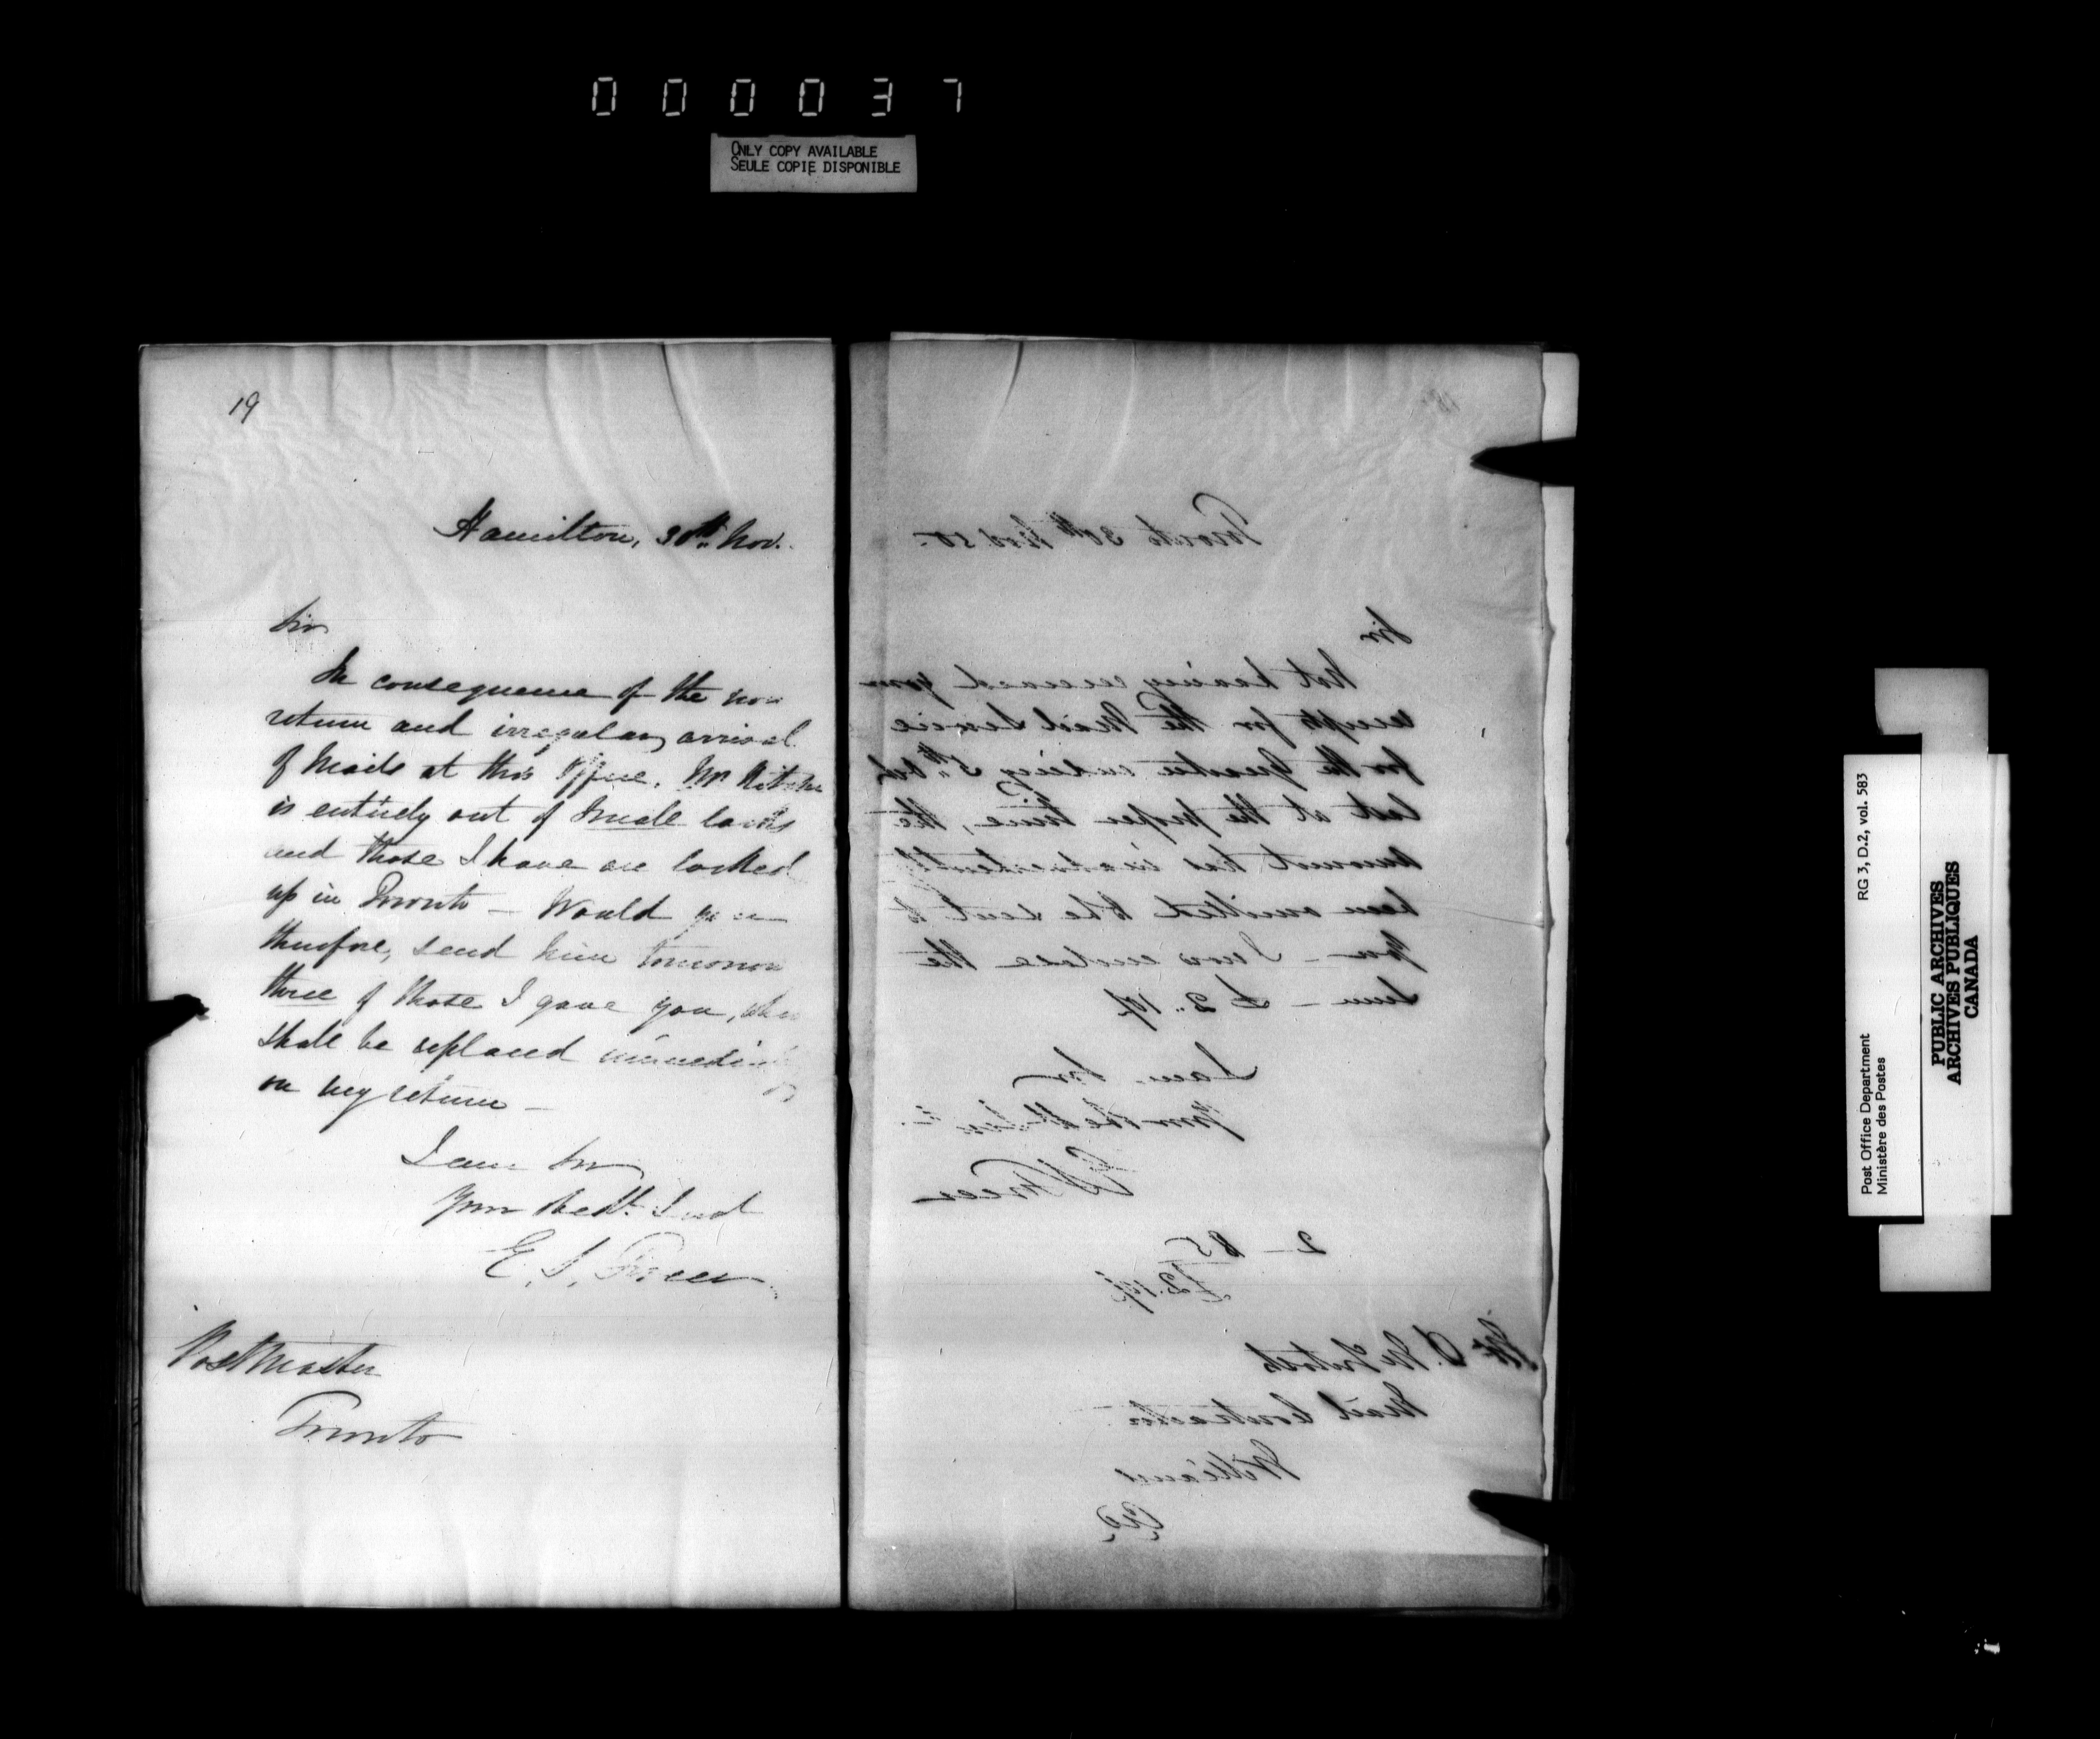 000037
ONLY COPY AVAILABLE
SEULE COPIE DISPONIBLE
19
Hamilton, 30th Nov.
Sir
In consequence of the non
return and irregular arrival
of Mails at this Office, Mr Ritchie
is entirely out of Small locks
and those I have are locked
up in Toronto – Would you
therefore, send him tomorrow
three of those I gave you,
shall be replaced immediately
on my return –
I am Sir
Your Obedt. Servt
E. S. Freer
Postmaster
Toronto
Toronto 30th Nov. 50.
Sir
Not having received your
receipts for the Mail Service
for the Quarter ending 5th Oct
last at the proper time, the
amount has inadvertently
been omitted to be sent to
you – I now enclose the
Sum – £2..
I am, Sir
Your Obedt Servt
E S Freer
2 – 85
£2.
Mr D. McIntosh
Mail Contractor
Williams
Post Office Department
Ministère des Postes
RG 3, D.2, vol. 583
PUBLIC ARCHIVES
ARCHIVES PUBLIQUES
CANADA